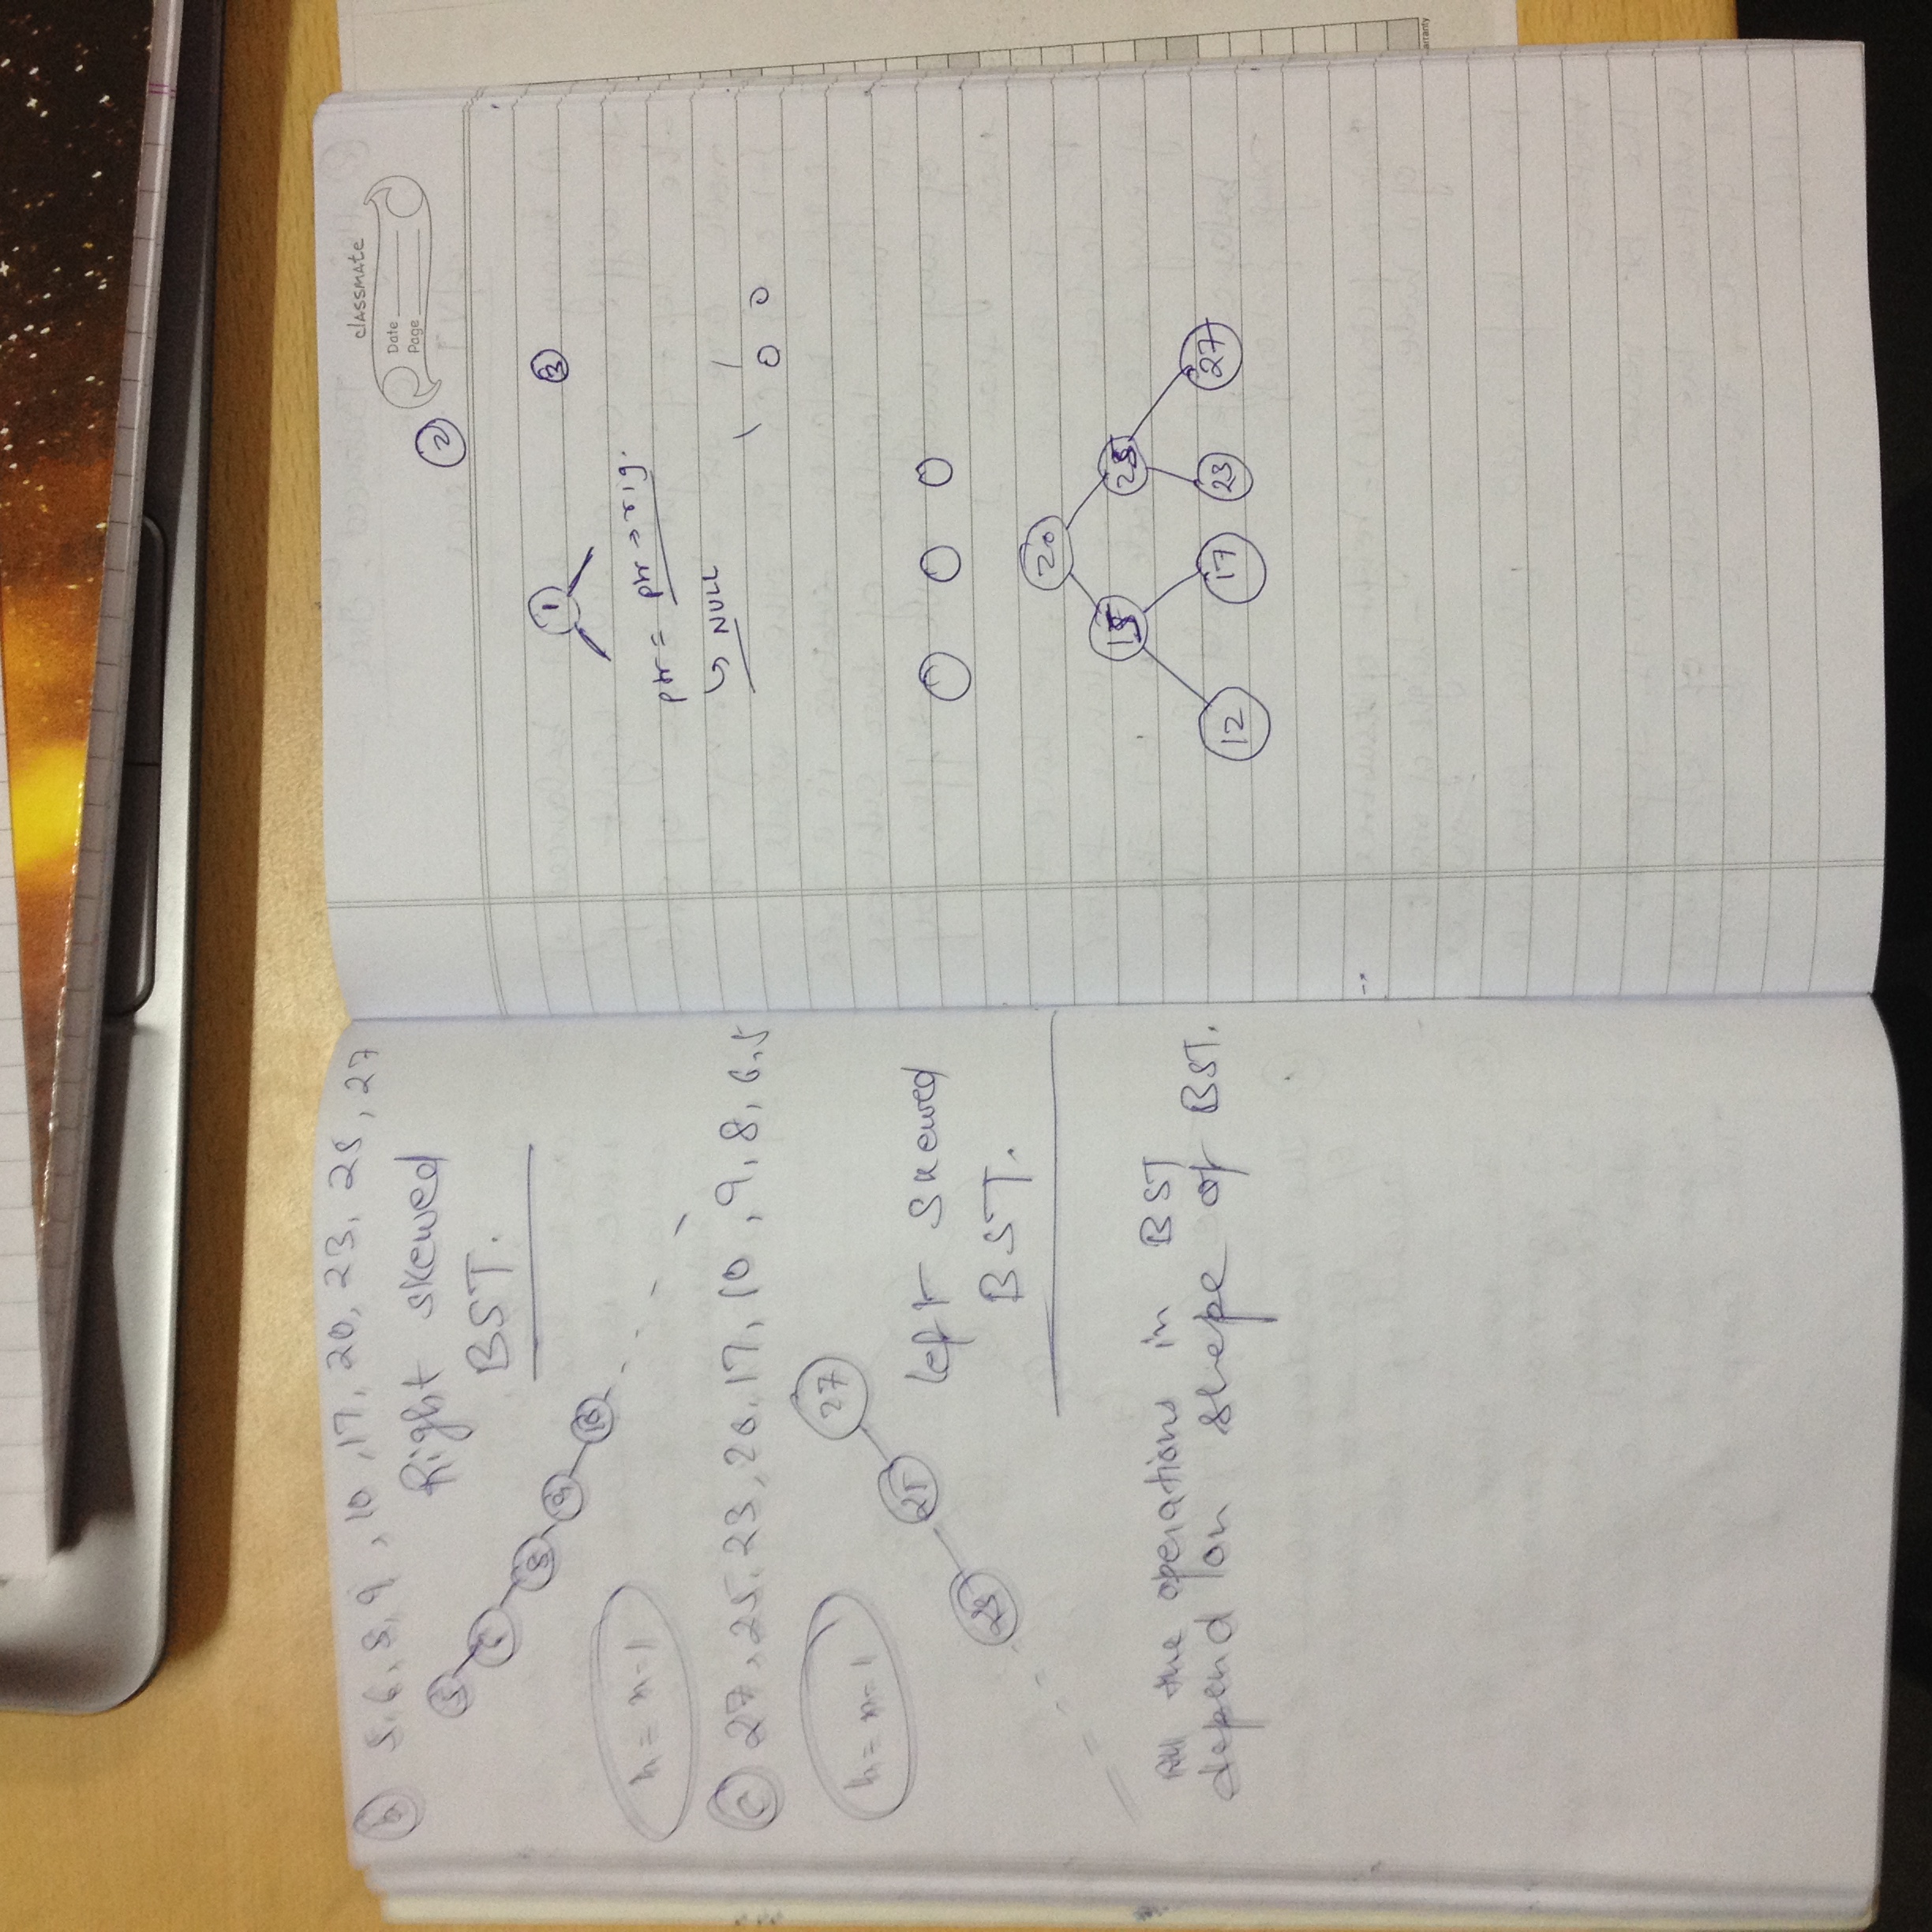 (b) 5, 6, 8, 9, 10, 17, 20, 23, 25, 27
5
8
9
10
Right skewed
BST.
h = n-1
(c) 27, 25, 23, 20, 17, 10, 9, 8, 6, 5
h = n-1
27
25
23
left skewed
BST.
All the operations in BST
depend on shape of BST.
classmate
Date
Page
2
1
3
ptr = ptr → rig.
↳ NULL
20
25
12
17
23
27
warranty